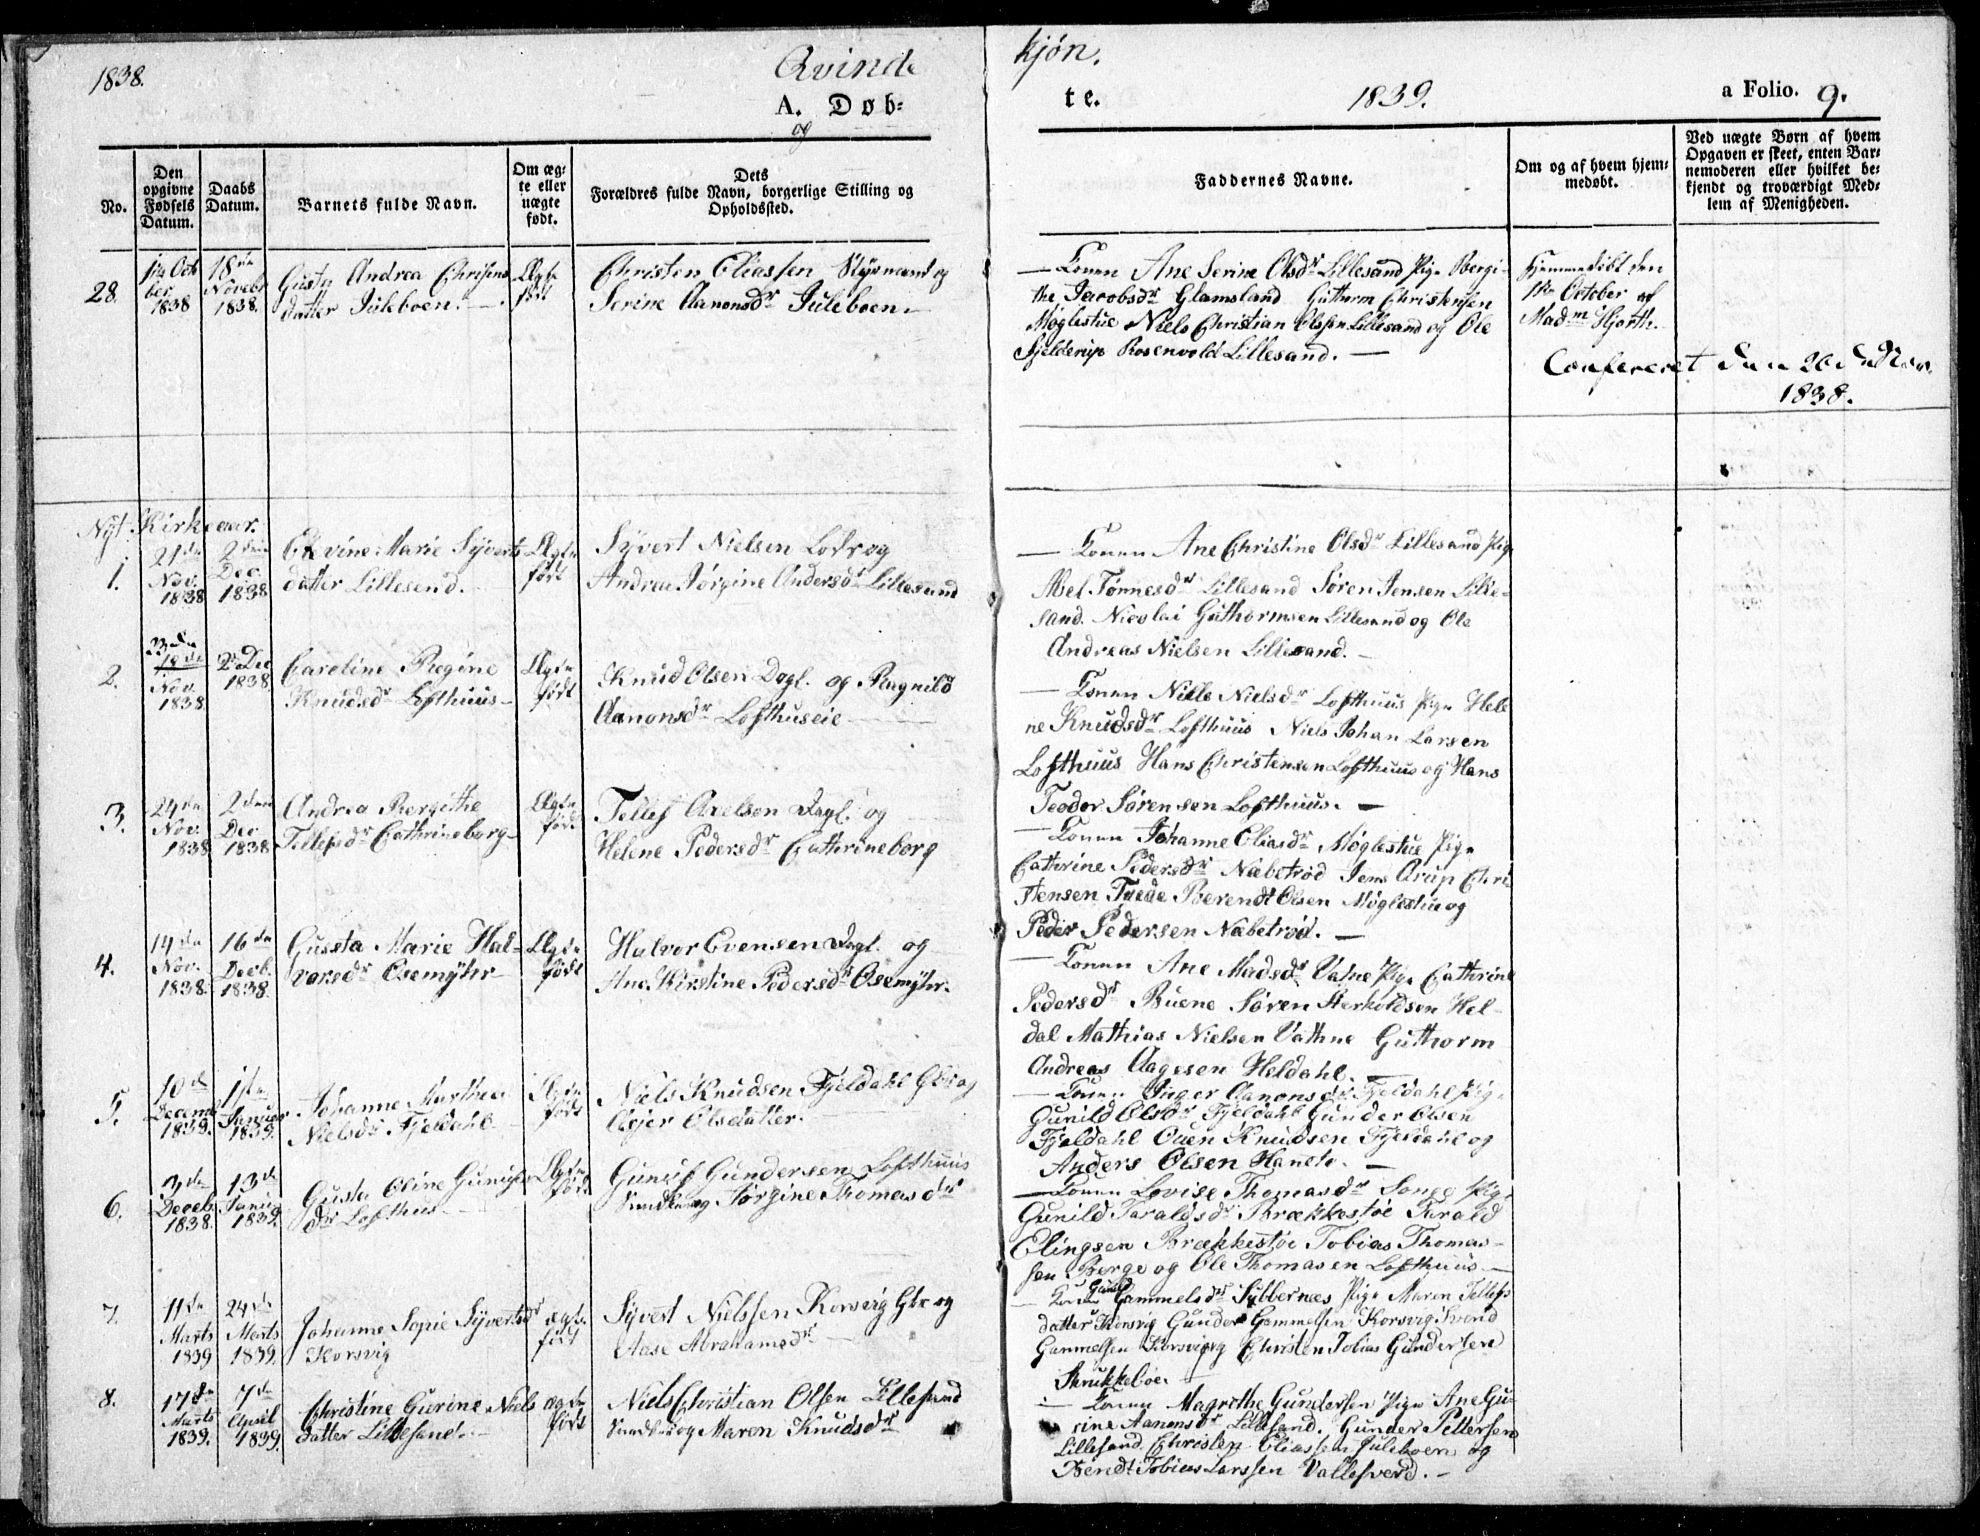 1838.
Qvinde
kjøn.
A. Døb=
te.
1839.
a Folio. 9.
No.
Den opgivne Fødsels Datum.
Daabs Datum.
Barnets fulde Navn.
Om ægte eller uægte født.
Dets
og
Forældres fulde Navn, borgerlige Stilling og
Opholdssted.
Faddernes Navne.
Om og af hvem hjem=
medøbt.
Ved uægte Børn af hvem
Opgaven er skeet, enten Bar=
nemoderen eller hvilket be=
kjendt og troværdigt Med=
lem af Menigheden.
28
1ste Octber 1838
18de Novebr 1838.
Gusta Andrea Chrisens
datter Juleboen.
Ægte født
Christen Eliassen Styrmand og
Serine Aanonsdr Juleboen
Konen Ane Serine Olsdr Lillesand Pige Bergi=
the Jacobsdr Glamsland Guttorm Christensen
Møglestue Niels Christian Olssen Lillesand og Ole
Hjelderup Rosenvold Lillesand.
Hjemmedøbt den
1ste October af
Madm Hjorth.
Confereret den 26de Nov.
1838.
Nyt Kirkeaar.
1.
21de Nov. 1838
2den Dec. 1838
Marie Syverts
datter Lillesend.
Ægte født
Syvert Nielsen Lods og
Andrea Jørgine Andersdr Lillesand
Konen Ane Christine Olsdr Lillesand Pige
Abel Tønnesdr Lillesand Søren Jensen Lille=
sand. Nicolai Guthormsen Lillesand og Ole
Andreas Nielsen Lillesand.
2.
23de
Nov. 1838
2de Dec 1838.
Caroline Regine
Knudsdr Lofthuus
Ægte født
Knud Olsen Dagl. og Ragnild
Aanonsdr Lofthuseie
Konen Nille Nielsdr Lofthuus Pige Hele
ne Knudsdr Lofthuus Niels Johan Larsen
Lofthuus Hans Christensen Lofthuus og Hans
Teodor Sørensen Lofthuus.
3.
24de Nov. 1838
2den Dec 1838
Andrea Bergithe
Tellefsdr Cathrineborg
Ægte født
Tellef Axelsen Dagl. og
Helene Pedersdr Cathrineborg
Konen Johanne Eliasdr Møglestue Pige
Cathrine Pedersdr Næbetrød Jens Arup Chri
stensen Tvede Berendt Olsen Møglestue og
Peder Pedersen Næbetrød.
4.
14de Nov. 1838.
16de Decb. 1838.
Gussta Marie Hal=
vorsdr Osemyhr
Ægte født
Halvor Evensen Dagl. og
Ane Kirstine Pedersdr Osemyhr.
Konen Ane Madsdr Vatne Pige Cathrine
Pedersdr Buene Søren Sterkoldsen Hel=
dal Mathias Nielsen Vathne Guthorm
Andreas Aagesen Heldahl.
5.
10de Decemb 1839.
1ste Januar 1839.
Johanne Marthea
Nielsdr Fjeldahl
Ægte født
Niels Knudsen Fjeldahl Gbr og
Asjer Olsdatter.
Konen Inger Aanonsdr Fjeldahl Pige
Gunild Olsdr Fjeldahl Gunder Olsen
Fjeldahl Ouen Knudsen Fjeldahl og
Anders Olsen Hanetø.
6.
3de Deceb. 1838.
13de Janua 1839.
Gusta Oline
dr Lofthus
Ægte født
Gunuf Gundersen Lofthuus
og Jørgine Thomasdr
Konen Lovise Thomasdr Songe Pige
Gunild Taraldsdr Brækkestøe Tarald
Elingsen Brækkestøe Tobias Thomas=
sen Berge og Ole Thomasen Lofthuus
7.
11de Marts 1839
24de Marts 1839.
Johanne Sopie Syvertsdr
Korsvig
ægte født
Syvert Nielssen Korsvig Gbr og
Aase Abrahamsdr
Konen Gunild Gammelsdr Tybbernæs Pige Maren Tellefs
datter Korsvig Gunder Gammelsen Korsvig Svend
Gammelsen Korsvig og Christen Tobias Gundersen
Skrukkeboe.
8.
17de Marts 1839.
7de April 1839.
Christine Gurine Niels
datter Lillesand.
ægte født
Niels Christian Olsen Lillesand
og Maren Knudsdr
Konen Magrethe Gundersen Pige Ane Gu=
rine Aanonsdr Lillesand. Gunder Pettersen
Lillesand Christen Eliassen Juleboen og
Bendt Tobias Larssen Vallesverd.